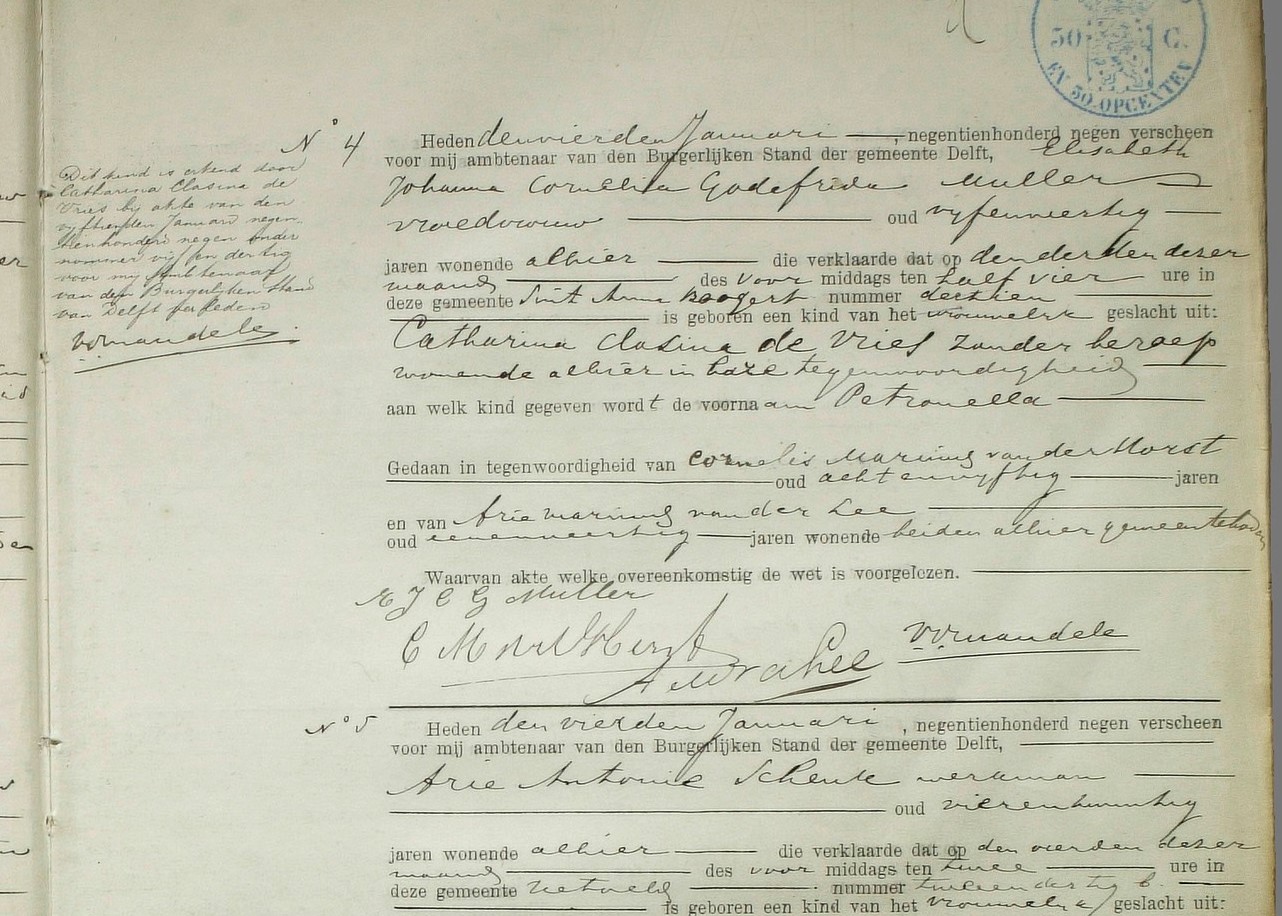 50 C.
EN 50 OPCENTEN
No 4
Heden den vierden Januari, negentienhonderd negen verscheen
voor mij ambtenaar van den Burgerlijken Stand der gemeente Delft, Elisabeth
Johanna Cornelia Godefrida Muller
vroedvrouw oud vyfenveertig
jaren wonende alhier die verklaarde dat op den derden dezer
maand des voor middags ten half vier ure in
deze gemeente Sint Anna Boogert nummer dertien
is geboren een kind van het vrouwelyk geslacht uit:
Catharina Clasina de Vries zonder beroep
wonende alhier in hare tegenwoordigheid
aan welk kind gegeven wordt de voornaam Petronella
Gedaan in tegenwoordigheid van Cornelis Marinus van der Horst
oud achtenvyftig jaren
en van Arie Marinus van der Lee
oud eenenveertig jaren wonende beiden alhier gemeentebode
Waarvan akte welke overeenkomstig de wet is voorgelezen.
E J C G Muller
C M vd Horst
A M vd Lee
Dit kind is erkend door
Catharina Clasina de
Vries bij akte van den
vyftienden Januari negen-
tienhonderd negen onder
nommer vyf en dertig
voor my Ambtenaar
van den Burgerlyken Stand
van Delft verleden
No 5
Heden den vierden Januari, negentienhonderd negen verscheen
voor mij ambtenaar van den Burgerlijken Stand der gemeente Delft,
Arie Antonie Schenk werkman
oud vierentwintig
jaren wonende alhier die verklaarde dat op den vierden dezer
maand des voor middags ten twee ure in
deze gemeente nummer tweeendertig b.
is geboren een kind van het vrouwelyk geslacht uit: